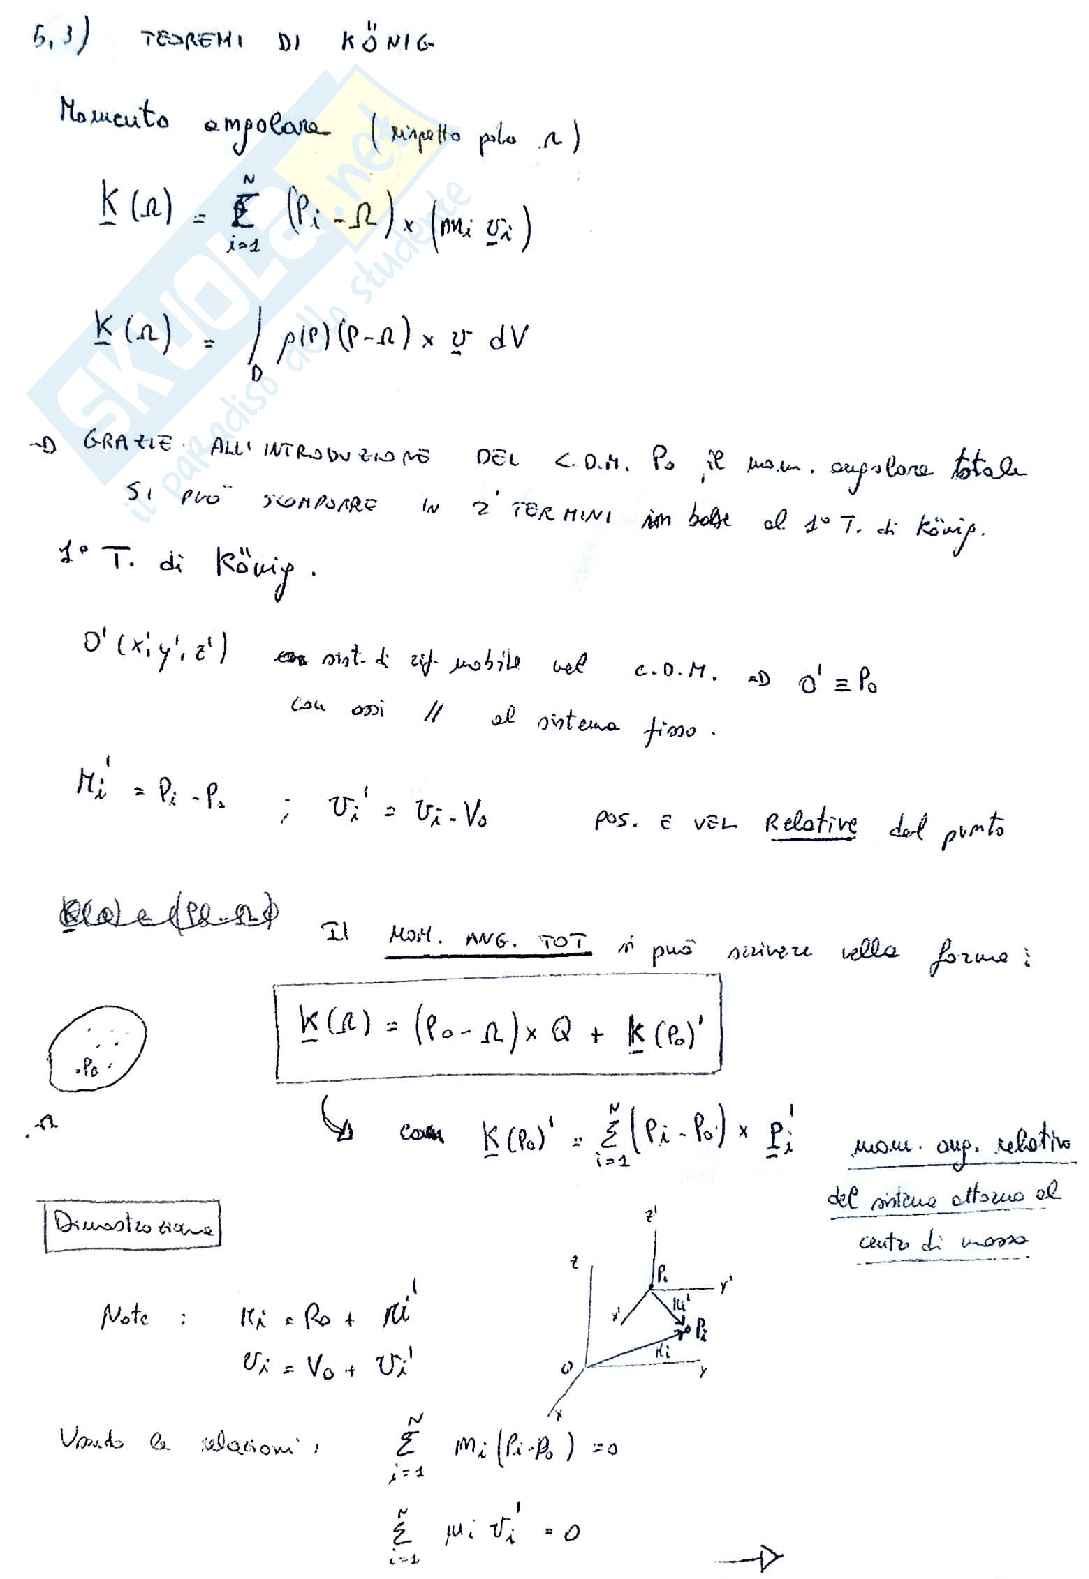 5,3) TEOREMI DI KÖNIG
Momento angolare (rispetto polo Ω)
K(Ω) = Σ_{i=1}^{N} (Pi - Ω) × (mi vi)
K(Ω) = ∫_D ρ(P)(P-Ω) × v dV
→ GRAZIE ALL'INTRODUZIONE DEL C.D.M. Po, il mom. angolare totale
SI PUÒ SCOMPORRE IN 2 TERMINI in base al 1° T. di König.
1° T. di König.
O'(x',y',z') sist. di rif. mobile nel C.D.M. → O' ≡ Po
con assi // al sistema fisso.
ri' = Pi - Po ; vi' = vi - Vo pos. E VEL Relative del punto
Il MOM. ANG. TOT si può scrivere nella forma:
K(Ω) = (Po - Ω) × Q + K(Po)'
.Po
.Ω
con K(Po)' = Σ_{i=1}^{N} (Pi - Po) × pi' mom. ang. relativo
del sistema attorno al
centro di massa
Dimostrazione
z'
z
Po
y'
x'
ri'
Pi
ri
O
y
x
Note : ri = Ro + ri'
vi = Vo + vi'
Usando le relazioni: Σ_{i=1}^{N} mi (Pi-Po) = 0
Σ_{i=1}^{N} mi vi' = 0
→
SKUOLA.net
il paradiso dello studente